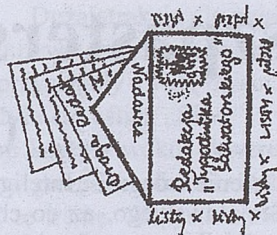 listy × listy
listy × listy × listy
listy × listy
Nadawca
Redakcja
„Tygodnika
Salwatorskiego”
Droga